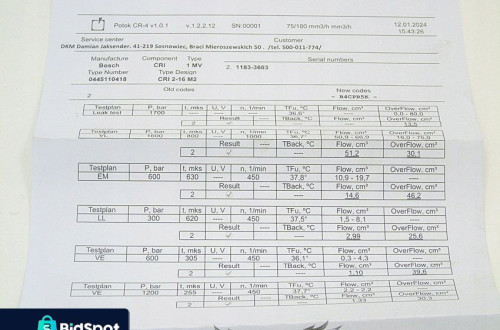 Potok CR-4 v1.0.1 v.1.2.2.12 SN:00001 75/180 mm3/h mm3/h 12.01.2024
15:43:26
Service center Customer
DKM Damian Jaksender. 41-219 Sosnowiec, Braci Mieroszewskich 50 . /tel. 500-011-774/
Manufacture Component Type Serial numbers
Bosch CRI 1 MV 2. 1183-3603
Type Number Type Design
0445110418 CRI 2-16 M2
Old codes New codes
2 - B4CPR5K -
Testplan P, bar t, mks U, V n, 1/min TFu, °C Flow, cm³ OverFlow, cm³
Leak test 1700 ---- ---- ---- 36,6° ---- 0,0 - 80,0
Result TBack, °C Flow, cm³ OverFlow, cm³
2 ✓ ---- ---- 13,5
Testplan P, bar t, mks U, V n, 1/min TFu, °C Flow, cm³ OverFlow, cm³
VL 1600 800 ---- 1000
Result TBack, °C Flow, cm³ OverFlow, cm³
2 ✓ ---- 51,2 30,1
Testplan P, bar t, mks U, V n, 1/min TFu, °C Flow, cm³ OverFlow, cm³
EM 600 630 ---- 450 37,8° 10,9 - 19,7 ----
Result TBack, °C Flow, cm³ OverFlow, cm³
2 ✓ ---- 14,6 46,2
Testplan P, bar t, mks U, V n, 1/min TFu, °C Flow, cm³ OverFlow, cm³
LL 300 620 ---- 450 37,5° 1,5 - 8,1 ----
Result TBack, °C Flow, cm³ OverFlow, cm³
2 ✓ ---- 2,99 25,6
Testplan P, bar t, mks U, V n, 1/min TFu, °C Flow, cm³ OverFlow, cm³
VE 600 305 ---- 450 36,1° 0,3 - 4,3 ----
Result TBack, °C Flow, cm³ OverFlow, cm³
2 ✓ ---- 1,10 39,6
Testplan P, bar t, mks U, V n, 1/min TFu, °C Flow, cm³ OverFlow, cm³
VE 1200 255 ---- 450 37,7° ----
Result TBack, °C Flow, cm³ OverFlow, cm³
2 ✓ ---- 1,33
BidSpot